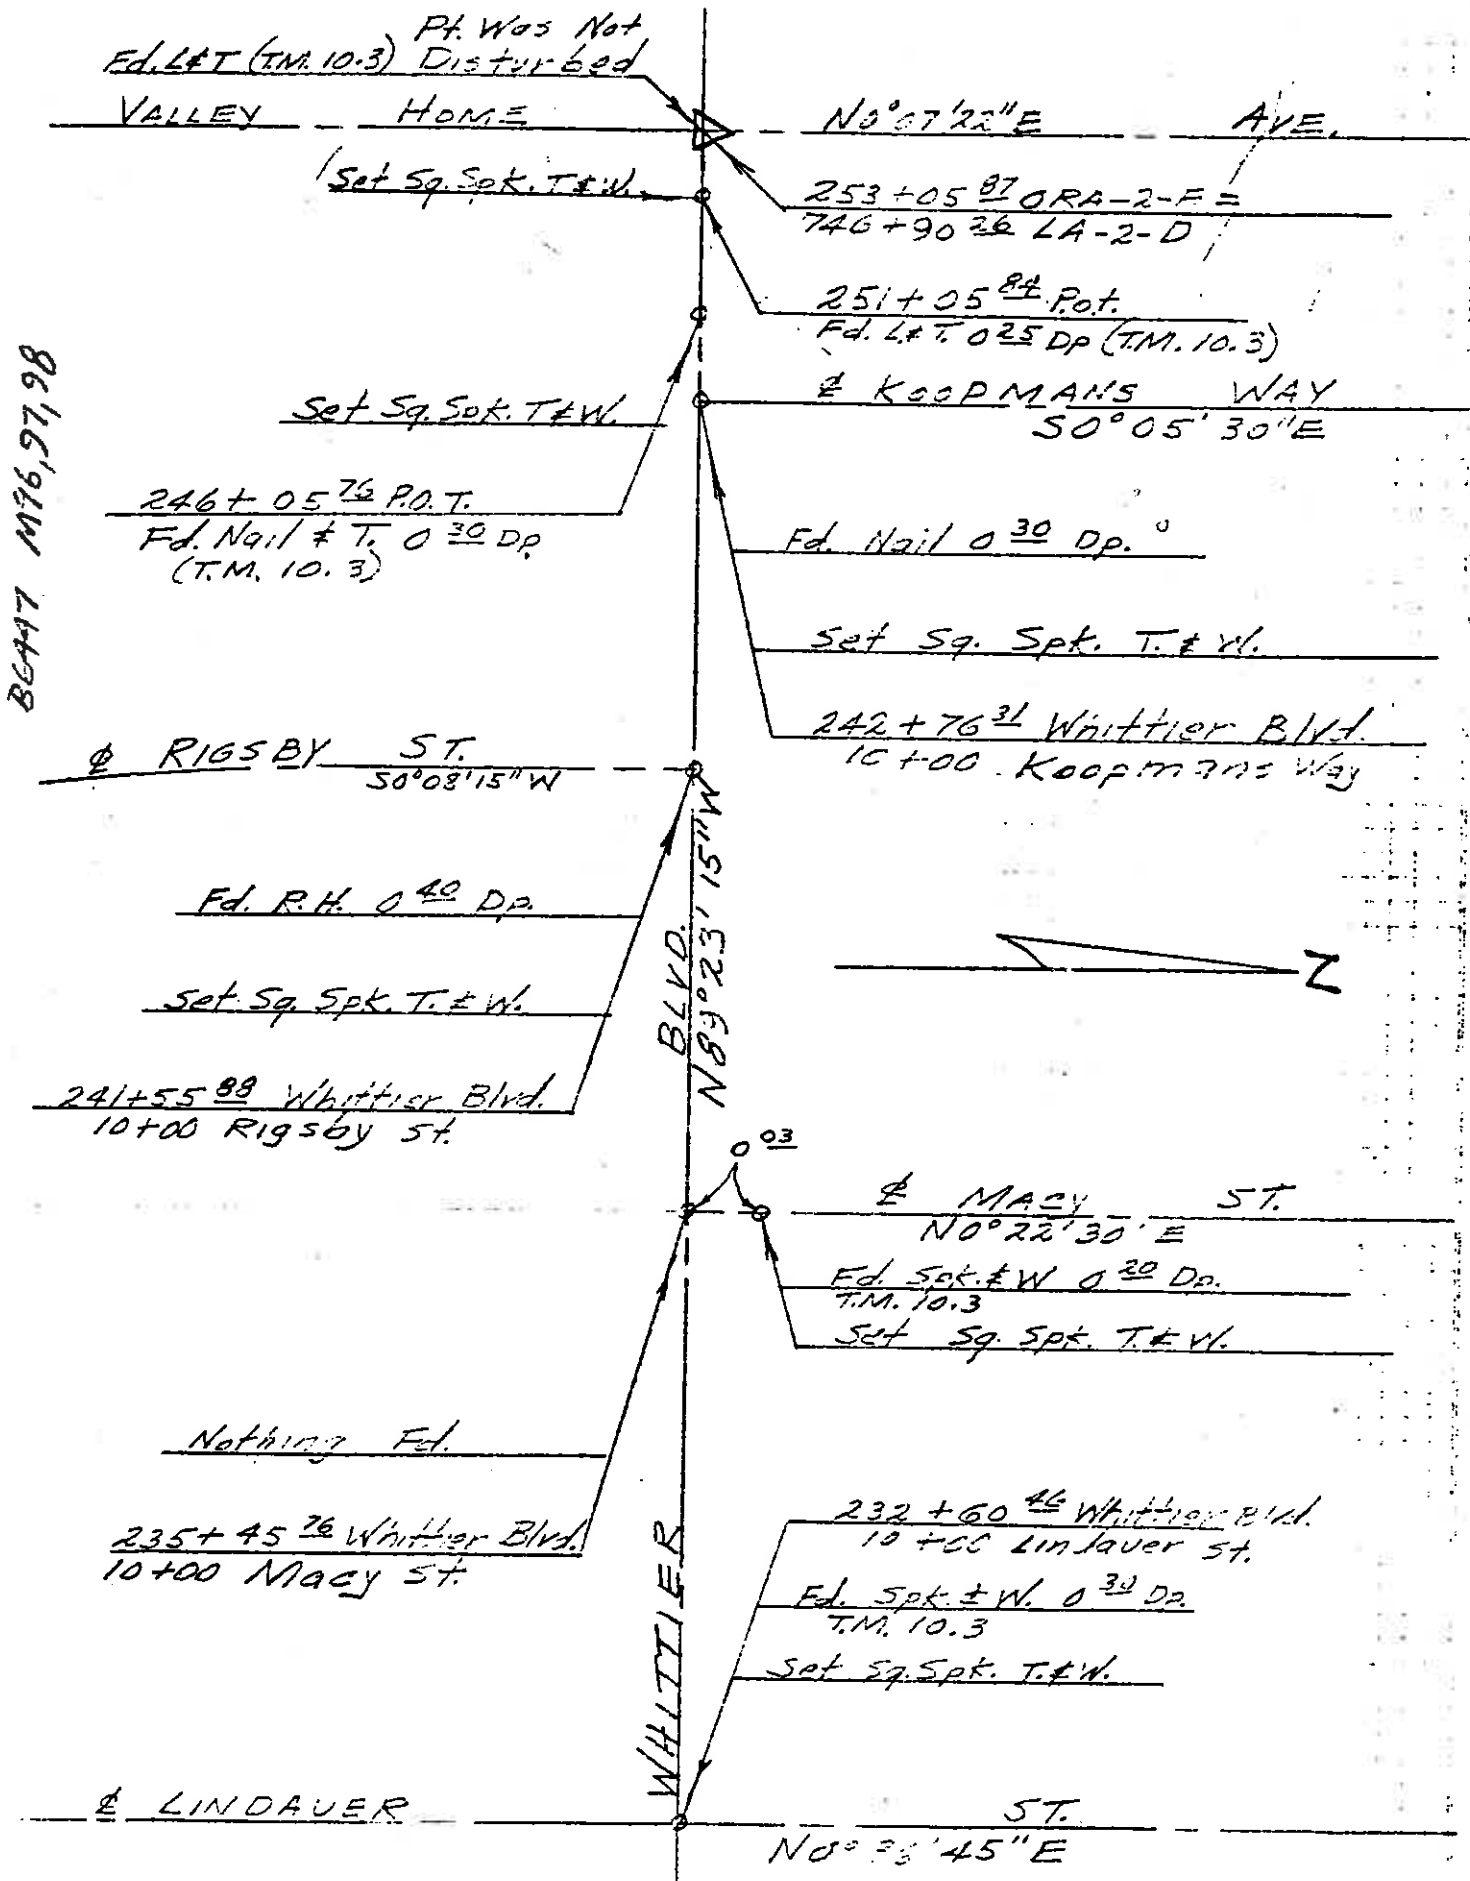 Pt. Was Not
Fd. L&T (T.M. 10.3) Disturbed
VALLEY HOME N0°07'22"E AVE.
Set Sq. Spk. T&W.
253+05 87 ORA-2-F =
746+90 26 LA-2-D
251+05 84 P.o.t.
Fd. L&T. 0 25 Dp (T.M. 10.3)
℄ KOOPMANS WAY
S0°05'30"E
Set Sq. Spk. T&W.
246+05 76 P.O.T.
Fd. Nail & T. 0 30 Dp
(T.M. 10.3)
Fd. Nail 0 30 Dp.
Set Sq. Spk. T. & W.
242+76 31 Whittier Blvd.
10+00 Koopmans Way
M96,97,98
℄ RIGSBY ST.
S0°08'15"W
Fd. R.H. 0 40 Dp.
Set Sq. Spk. T. & W.
241+55 88 Whittier Blvd.
10+00 Rigsby St.
WHITTIER BLVD.
N89°23'15"W
Z
0 03
℄ MACY ST.
N0°22'30"E
Fd. Spk. & W 0 20 Dp.
T.M. 10.3
Set Sq. Spk. T. & W.
Nothing Fd.
235+45 76 Whittier Blvd.
10+00 Macy St.
232+60 46 Whittier Blvd.
10+00 Lindauer St.
Fd. Spk. & W. 0 30 Dp.
T.M. 10.3
Set Sq. Spk. T. & W.
℄ LINDAUER ST.
45"E